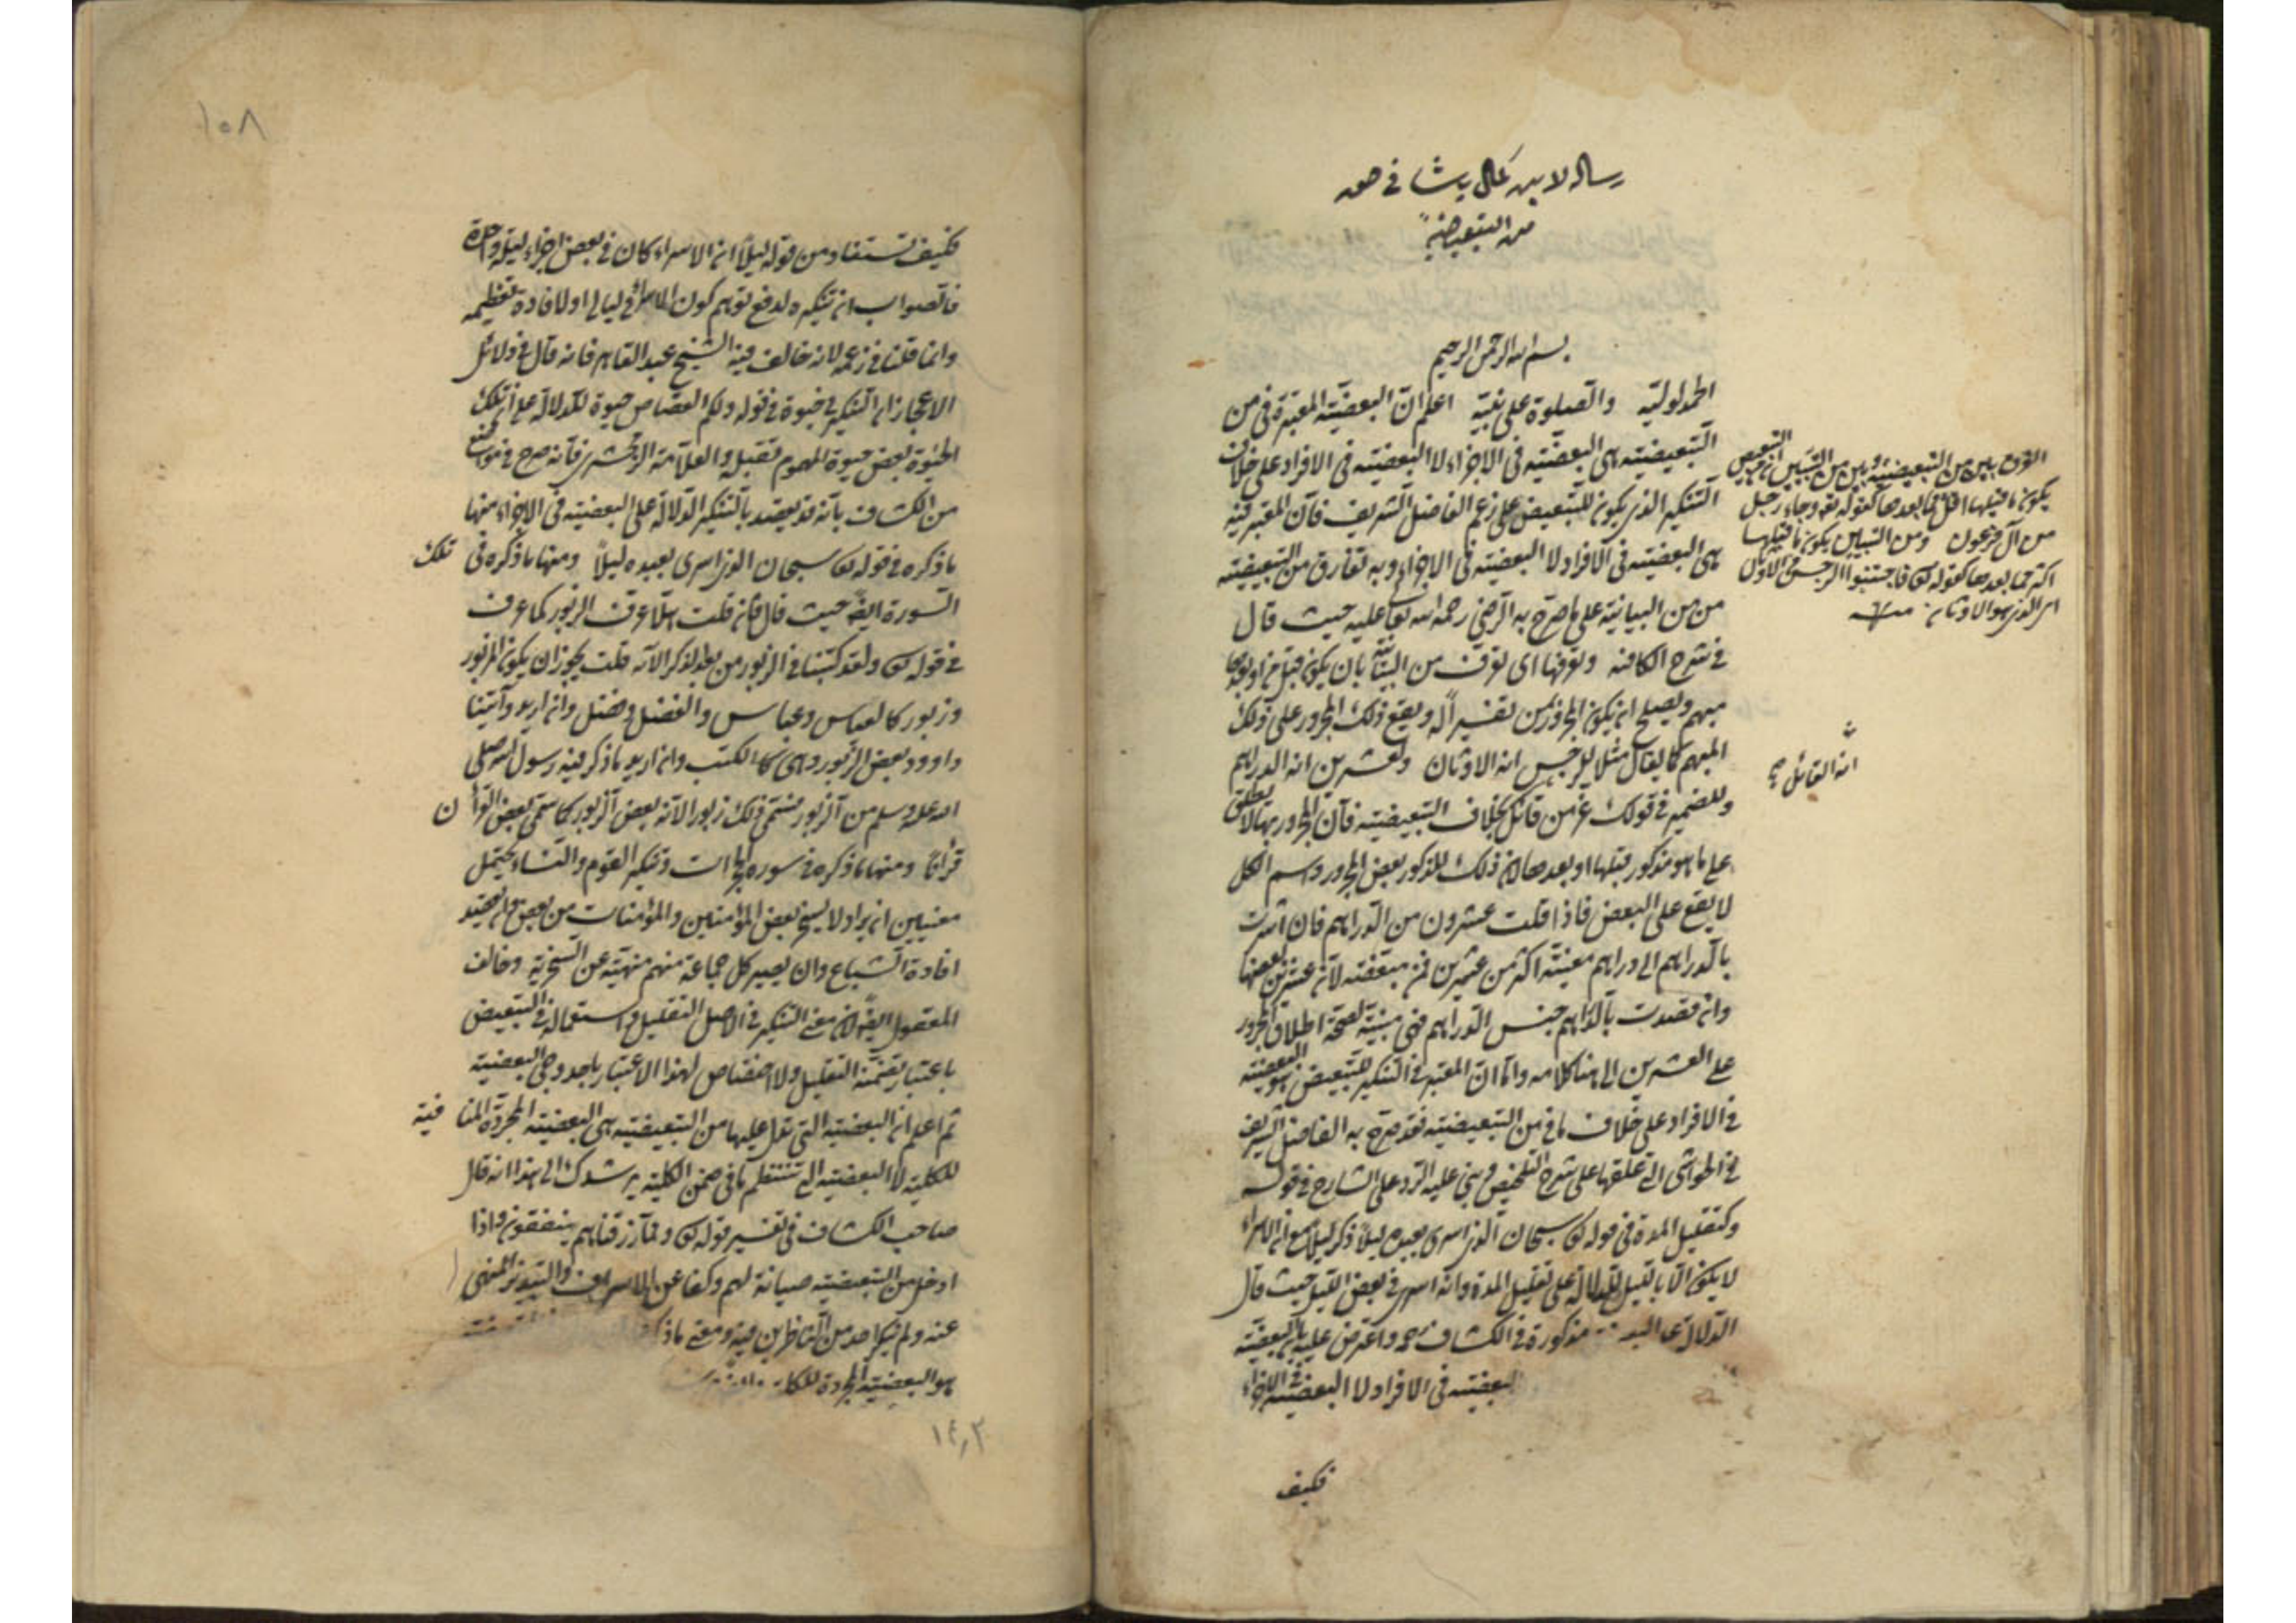 رساله لابن كمال پاشا فى حق
من التبعيضية
بسم الله الرحمن الرحيم
الحمد لوليه والصلوة على نبيه اعلم ان البعضية المعتبرة فى من
التبعيضية هى البعضية فى الاجزاء لا البعضية فى الافراد على خلاف
التنكير الذى يكون للتبعيض على زعم الفاضل الشريف فان المعتبر فيه
هى البعضية فى الافراد لا البعضية فى الاجزاء وبه تفارق من التبعيضية
من من البيانية على ما صرح به الرضى رحمه الله تعا عليه حيث قال
فى شرح الكافيه وتعرفها اى تعرف من البيانية بان يكون قبل من او بعدها
مبهم ويصلح ان يكون المجرور بمن تفسيرا له ويقع ذلك المجرور على ذلك
المبهم كما يقال مثلا للرجس انه الاوثان ولعشرين انه الدراهم
وللضمير فى قولك عز من قائل بخلاف التبعيضية فان المجرور بها لا يطلق
على ما هو مذكور قبلها او بعدها لان ذلك المذكور بعض المجرور واسم الكل
لا يقع على البعض فاذا قلت عشرون من الدراهم فان اشرت
بالدراهم الى دراهم معينة اكثر من عشرين فمن مبعضة لان عشرين بعضها
وان قصدت بالدراهم جنس الدراهم فهى مبينة لصحة اطلاق المجرور
على العشرين الى هنا كلامه واما ان المعتبر فى التنكير للتبعيض هو البعضية
فى الافراد على خلاف ما فى من التبعيضية فقد صرح به الفاضل الشريف
فى الحواشى التى علقها على شرح التلخيص وبنى عليه الرد على الشارح فى قوله
وكتقليل المدة فى قوله تع سبحان الذى اسرى بعبده ليلا ذكر ليلا مع ان الاسراء
لا يكون الا بالليل للدلالة على تقليل المدة وانه اسرى فى بعض الليل حيث قال
الدلالة على البعضية مذكورة فى الكشاف واعترض عليه بان البعضية
البعضية فى الافراد لا البعضية فى الاجزاء
فكيف
الفرق بين من التبعيضية وبين من التبيين ان من التبعيض
يكون ما قبلها اقل مما بعدها كقوله تعه وجاء رجل
من آل فرعون ومن التبيين يكون ما قبلها
اكثر مما بعدها كقوله تع فاجتنبوا الرجس من الاوثان
اى الذى هو الاوثان منه
انه القائل صح
١٠٨
فكيف تستفاد من قوله ليلا ان الاسراء كان فى بعض اجزاء ليلة واحدة
فالصواب ان تنكيره لدفع توهم كون الاسراء فى ليالى او لافادة تعظيمه
وانما قلنا فى زعمه لانه خالف فيه الشيخ عبد القاهر فانه قال فى دلائل
الاعجاز ان التنكير فى حيوة فى قوله ولكم القصاص حيوة للدلالة على ان تلك
الحيوة بعض حيوة المهموم بقتله والعلامة الزمخشرى فانه صرح فى مواضع
من الكشاف بانه قد يقصد بالتنكير الدلالة على البعضية فى الاجزاء منها
ما ذكره فى قوله تع سبحان الذى اسرى بعبده ليلا ومنها ما ذكره فى تلك
السورة ايضا حيث قال فان قلت هلا عرف الزبور كما عرف
فى قوله تع ولقد كتبنا فى الزبور من بعد الذكر الآية قلت يجوز ان يكون الزبور
وزبور كالعباس وعباس والفضل وفضل وان اريد وآتينا
داوود بعض الزبور وهى الكتب وان اريد ما ذكر فيه رسول الله صلى
الله عليه وسلم من الزبور فسمى ذلك زبورا لانه بعض الزبور كما سمى بعض القرآن
قرآنا ومنها ما ذكره فى سورة الحجرات وتنكير القوم والنساء يحتمل
معنيين ان يراد لا يسخر بعض المؤمنين والمؤمنات من بعض وان يقصد
افادة الشياع وان يصير كل جماعة منهم منهية عن السخرية وخالف
المعقول ايضا لان معنى التنكير فى الاصل التقليل واستعماله فى التبعيض
باعتبار تضمنه التقليل ولا اختصاص لهذا الاعتبار باحد وجهى البعضية
ثم اعلم ان البعضية التى تدل عليها من التبعيضية هى البعضية المجردة المنافية
للكلية لا البعضية التى تنتظم ما فى ضمن الكلية يرشدك الى هذا انه قال
صاحب الكشاف فى تفسير قوله تع ومما رزقناهم ينفقون واذا
ادخل من التبعيضية صيانة لهم وكفا عن الاسراف والتبذير المنهى
عنه ولم ينكر احد من الناظرين فيه ومعنى ما ذكر
هو البعضية المجردة
١٤٢